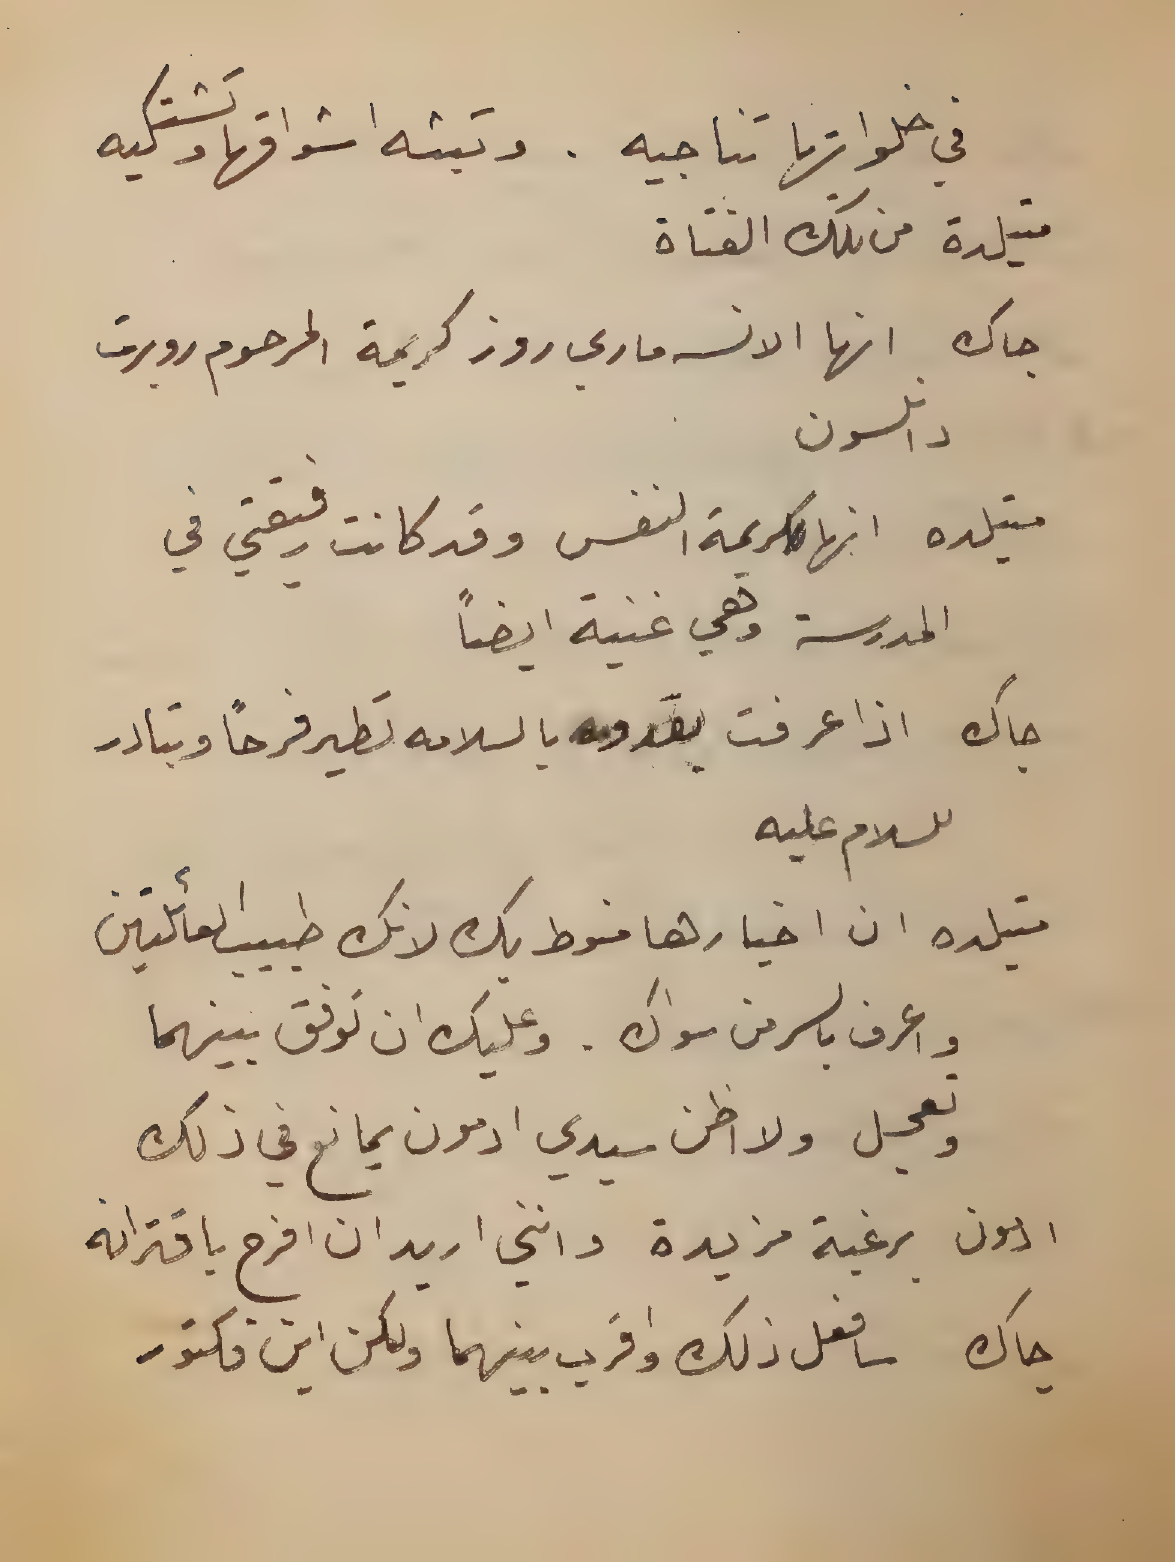 في خلواتها تناجيه . وتبثه اشواقها وتشتكيه
متيلدة من تلك الفتاة
جاك انها الانسه ماري روز كريمة المرحوم روبرت
دانلسون
متيلده انها كريمة النفس وقد كانت رفيقتي في
المدرسة وهي غنية ايضاً
جاك اذا عرفت بقدومه بالسلامه تطير فرحاً وتبادر
للسلام عليه
متيلده ان اخبارها منوط بك لانك طبيب العائلتين
واعرف بالسر من سواك . وعليك ان توفق بينهما
وتعجل ولا اظن سيدي ادمون يمانع في ذلك
ادمون برغبة مزيدة وانني اريد ان افرح باقترانه
جاك سافعل ذلك واقرب بينهما ولكن اين فكتور